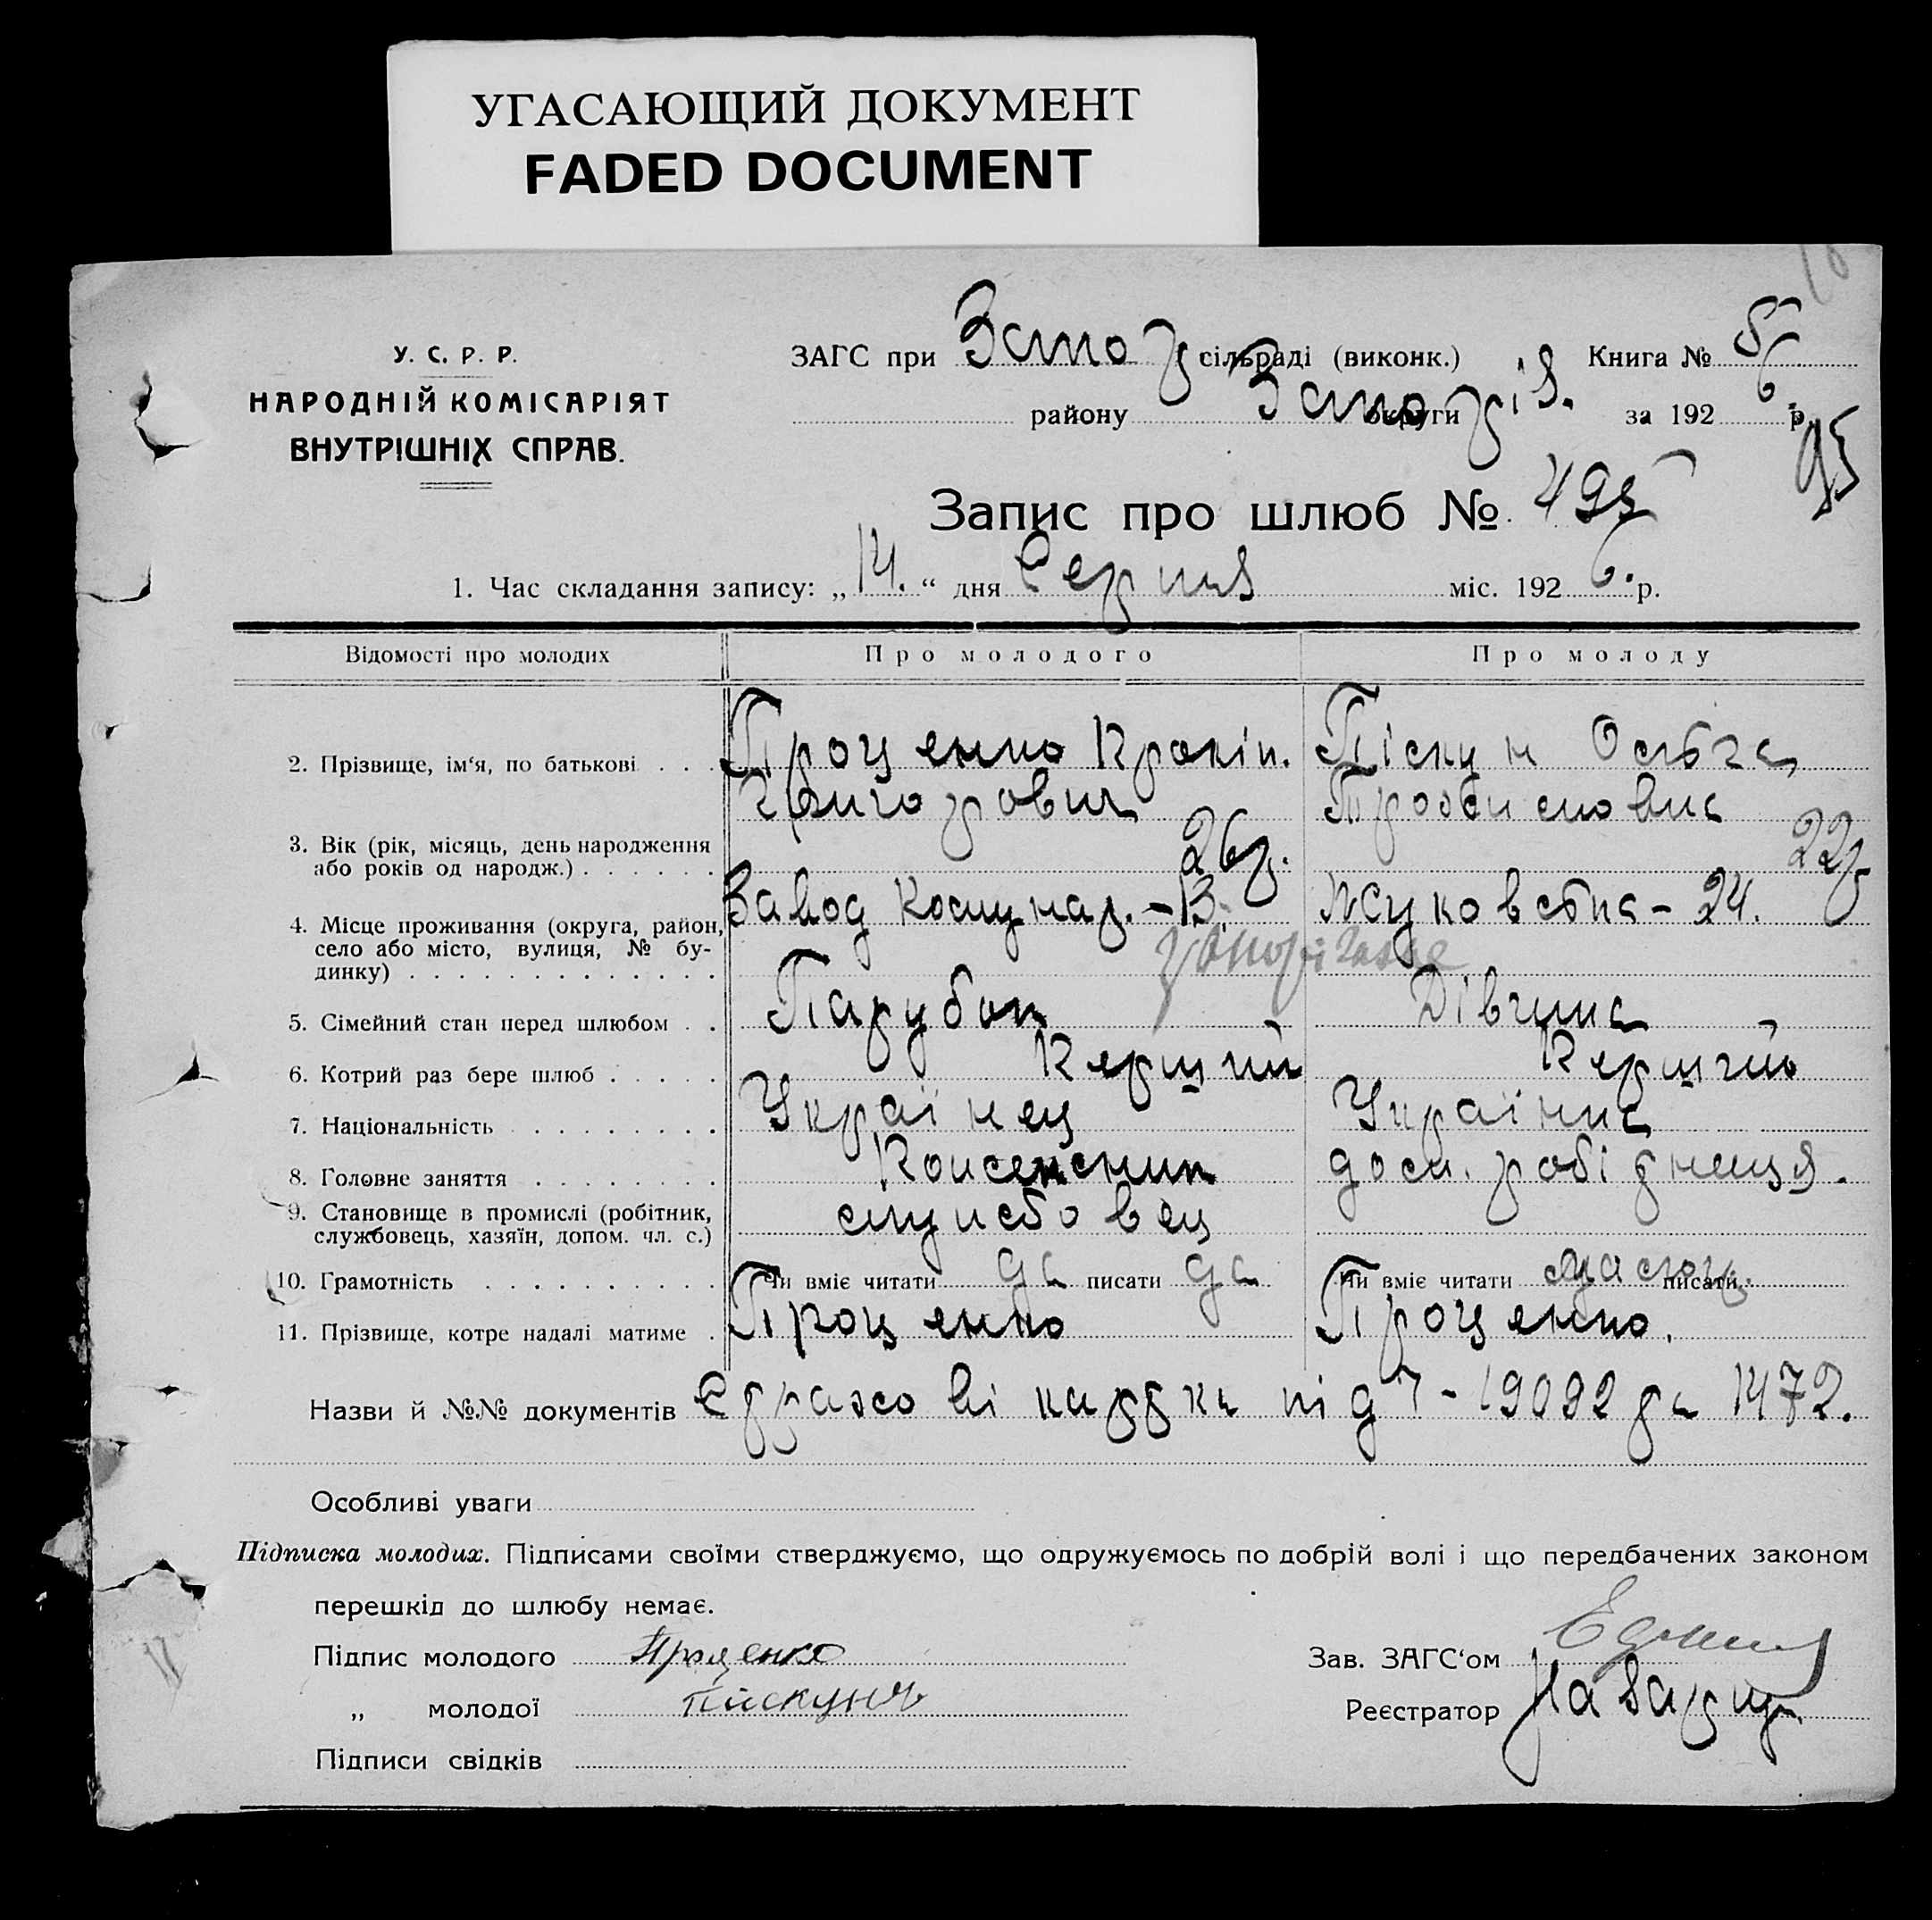 УГАСАЮЩИЙ ДОКУМЕНТ
FADED DOCUMENT
У. С. Р. Р.
НАРОДНІЙ КОМІСАРІЯТ
ВНУТРІШНІХ СПРАВ.
ЗАГС при Запор сільраді (виконк.) Книга № 5
району Запоріз. округи за 1926 р.
95
Запис про шлюб № 495
1. Час складання запису: „14.“ дня Серпня міс. 1926. р.
Відомості про молодих Про молодого Про молоду
2. Прізвище, ім'я, по батькові Проценко Прокіп. Піскун
Григорович
3. Вік (рік, місяць, день народження
або років од народж.) 26р. 22р
4. Місце проживання (округа, район, Завод Комунар. – 13. Жуковська – 24.
село або місто, вулиця, № бу-
динку)
5. Сімейний стан перед шлюбом Парубок Дівчина
6. Котрий раз бере шлюб Перший Перший
7. Національність Українец Українка
8. Головне заняття дом. робітниця.
9. Становище в промислі (робітник, службовец
службовець, хазяїн, допом. чл. с.)
10. Грамотність Чи вміє читати да писати да Чи вміє читати писати
11. Прізвище, котре надалі матиме Проценко Проценко.
Назви й №№ документів Страхові картки під № 19092 та 1472.
Особливі уваги
Підписка молодих. Підписами своїми стверджуємо, що одружуємось по добрій волі і що передбачених законом
перешкід до шлюбу немає.
Підпис молодого Проценко Зав. ЗАГС‘ом
„ молодої Пискунъ Реєстратор
Підписи свідків